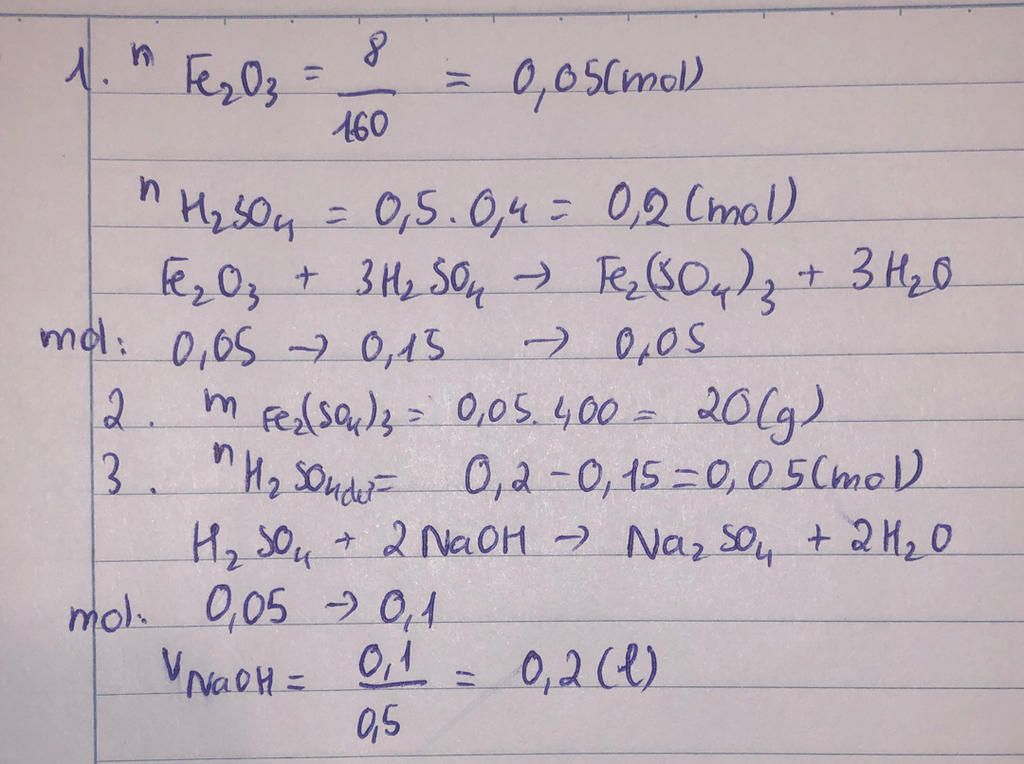 1. n Fe₂O₃ = 8/160 = 0,05(mol)
n H₂SO₄ = 0,5 . 0,4 = 0,2 (mol)
Fe₂O₃ + 3H₂SO₄ → Fe₂(SO₄)₃ + 3H₂O
mol: 0,05 → 0,15 → 0,05
2. m Fe₂(SO₄)₃ = 0,05. 400 = 20(g)
3. n H₂SO₄ dư = 0,2 - 0,15 = 0,05(mol)
H₂SO₄ + 2NaOH → Na₂SO₄ + 2H₂O
mol: 0,05 → 0,1
V NaOH = 0,1/0,5 = 0,2 (l)